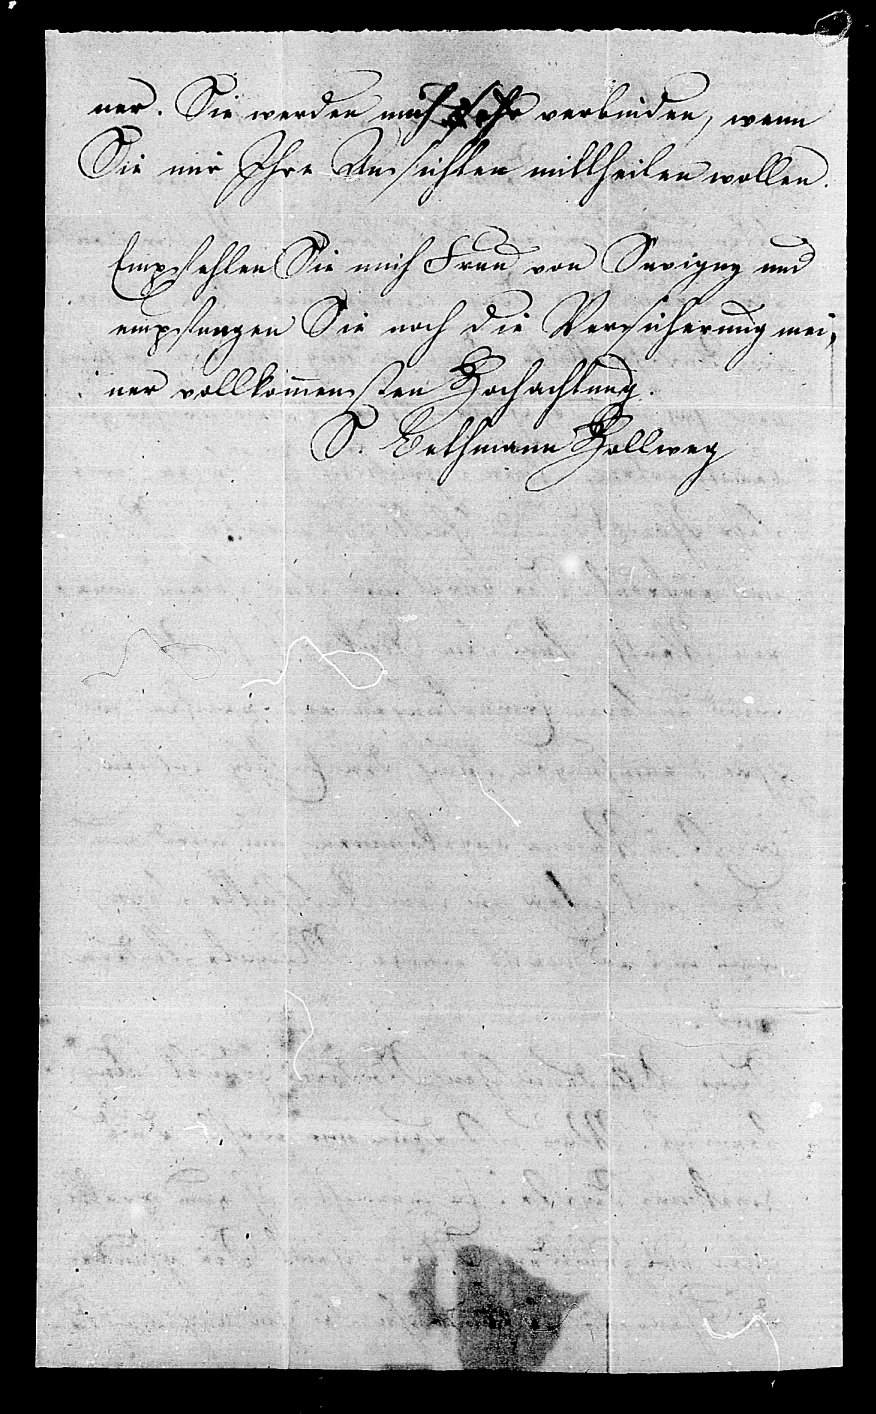 ner. Sie werden mich sehr verbinden, wenn
Sie mir Ihre Ansichten mittheilen wollen.
Empfehlen Sie mich Frau von Savigny und
empfangen Sie noch die Versicherung mei-
ner vollkommensten Hochachtung.
S. Bethmann Hollweg